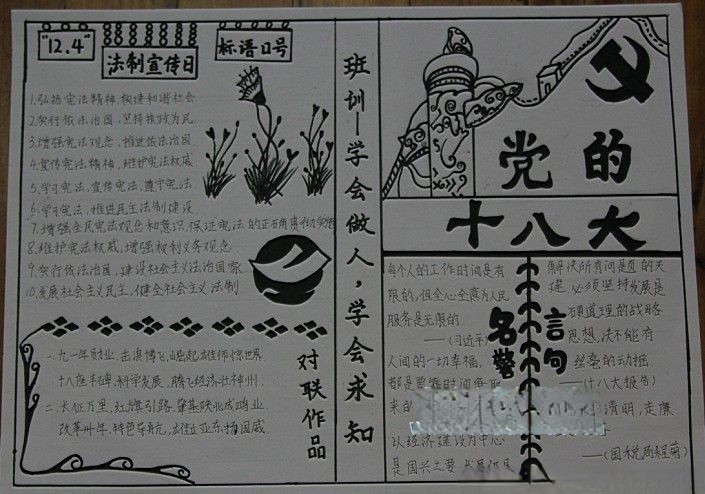 "12.4"
法制宣传日
标语口号
1.弘扬宪法精神,构建和谐社会
2.实行依法治国,坚持执政为民
3.增强宪法观念,推进依法治国
4.宣传宪法精神,维护宪法权威
5.学习宪法,宣传宪法,遵守宪法
6.学习宪法,推进民主法制建设
7.增强全民宪法观念和意识,保证宪法的正确贯彻实施
8.维护宪法权威,增强权利义务观念
9.实行依法治国,建设社会主义法治国家
10.发展社会主义民主,健全社会主义法制
对联作品
十八座丰碑,科学发展,腾飞经济壮神州.
二、长征万里,红旗引路,肇基陕北成鸿业
改革卅年,特色导航,屹立亚东扬国威
班训—学会做人,学会求知
党的
十八大
名警
言句
每个人的工作时间是有
限的,但全心全意为人民
服务是无限的
——(习近平)
人间的一切幸福,
都是要靠
来的
以经济建设为中心
是国兴之要
解决所有问题的关
建,必须坚持发展是
硬道理的战略
思想,决不能有
丝毫的动摇
——(十八大报告)
清明,走廉
——(国税局程菊)